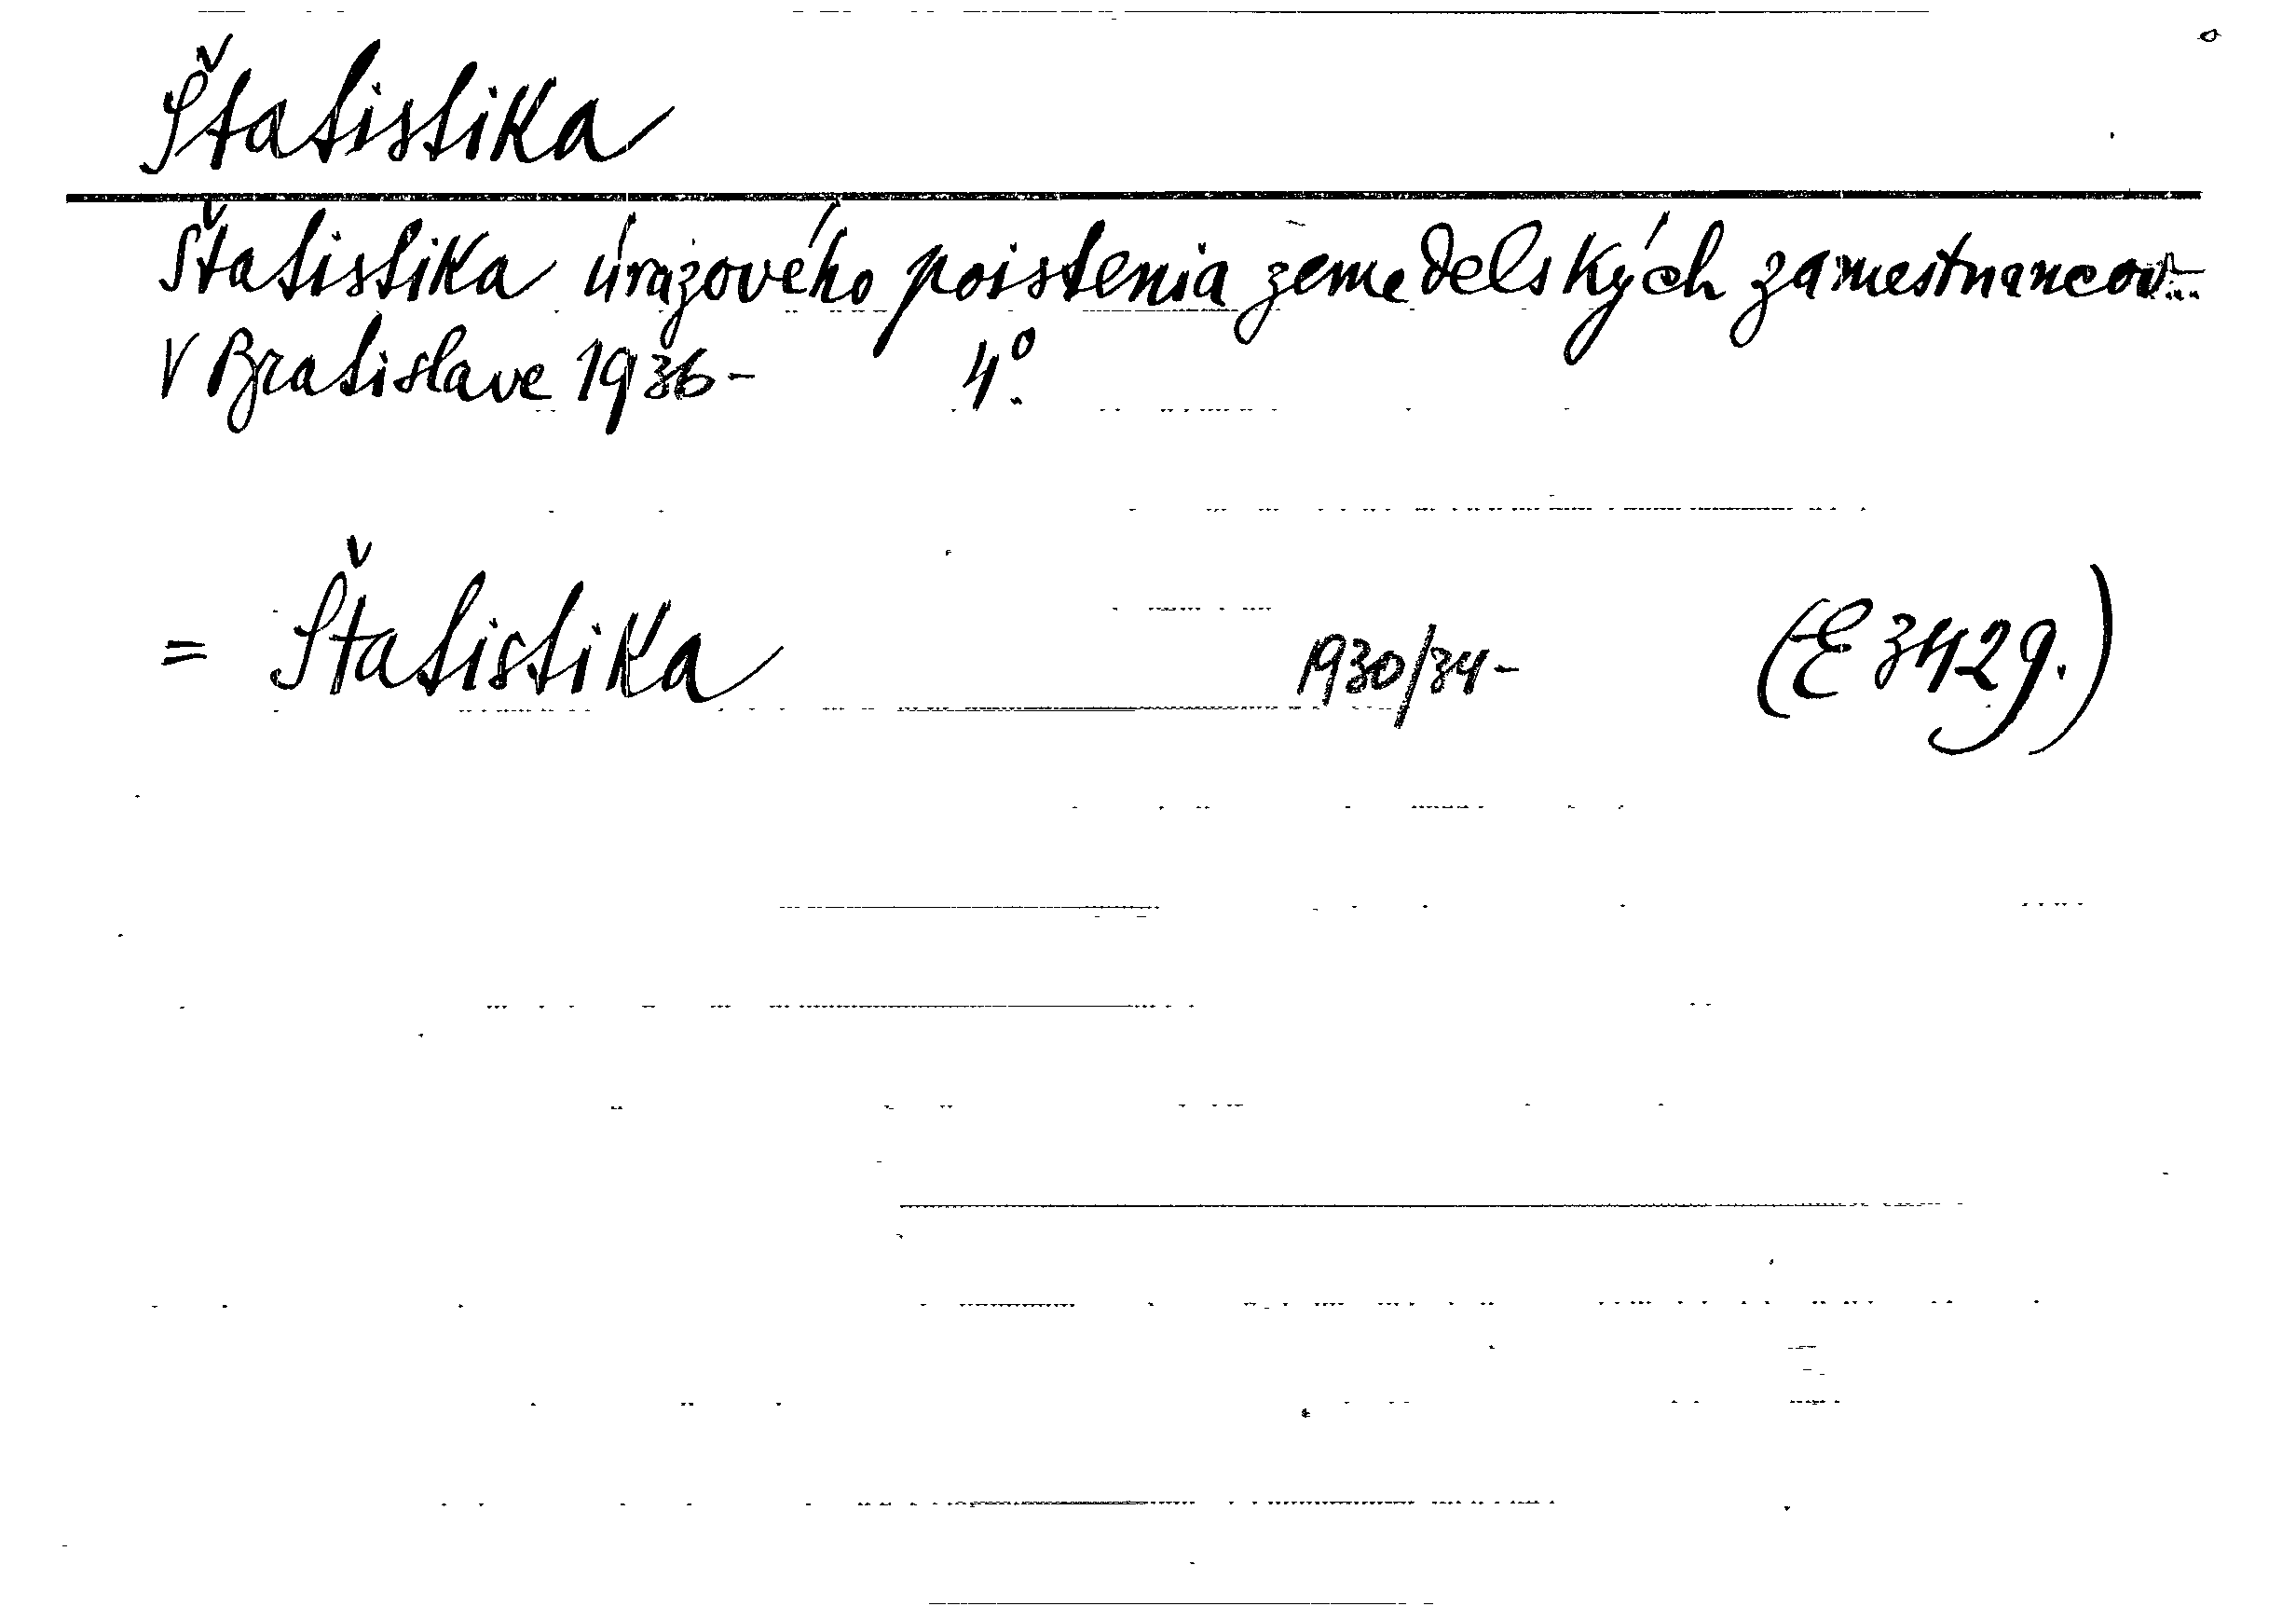 Štatistika
Štatistika úrazového poistenia zemedelských zamestnancov...
V Bratislave 1936- 4°.
= Štatistika 1930/34- (E 3429.)